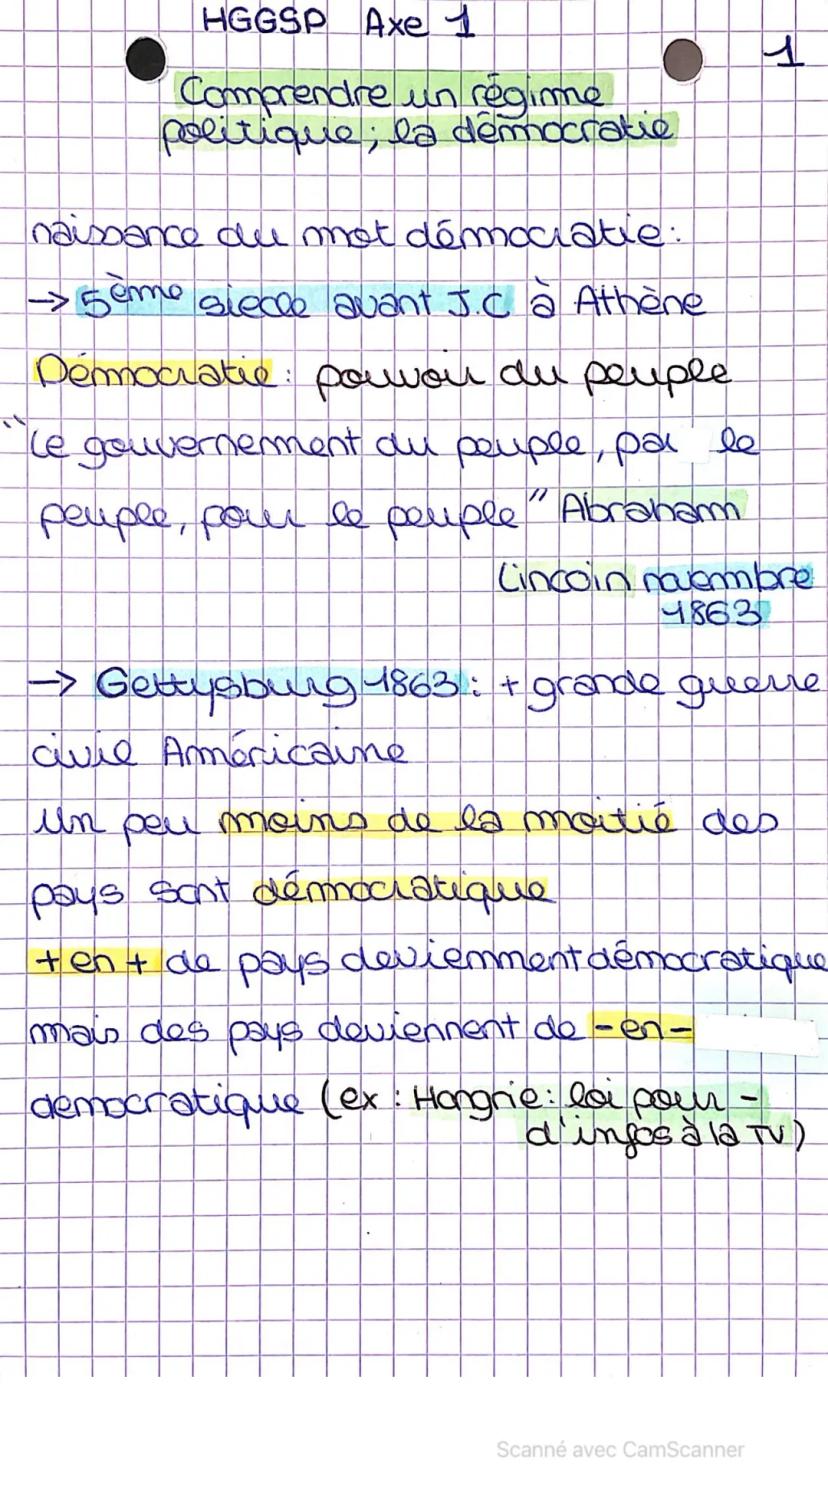 HGGSP Axe 1
1
Comprendre un régime
politique ; la démocratie
naissance du mot démocratie :
→ 5ème siecle avant J.C à Athène
Démocratie : pouvoir du peuple
"Le gouvernement du peuple, par le
peuple, pour le peuple" Abraham
Lincoln novembre
1863
→ Gettysburg 1863 : + grande guerre
civile Américaine
Un peu moins de la moitié des
pays sont démocratique
+ en + de pays deviemment démocratique
mais des pays deviennent de - en -
democratique (ex : Hongrie : loi pour -
d'infos à la TV)
Scanné avec CamScanner